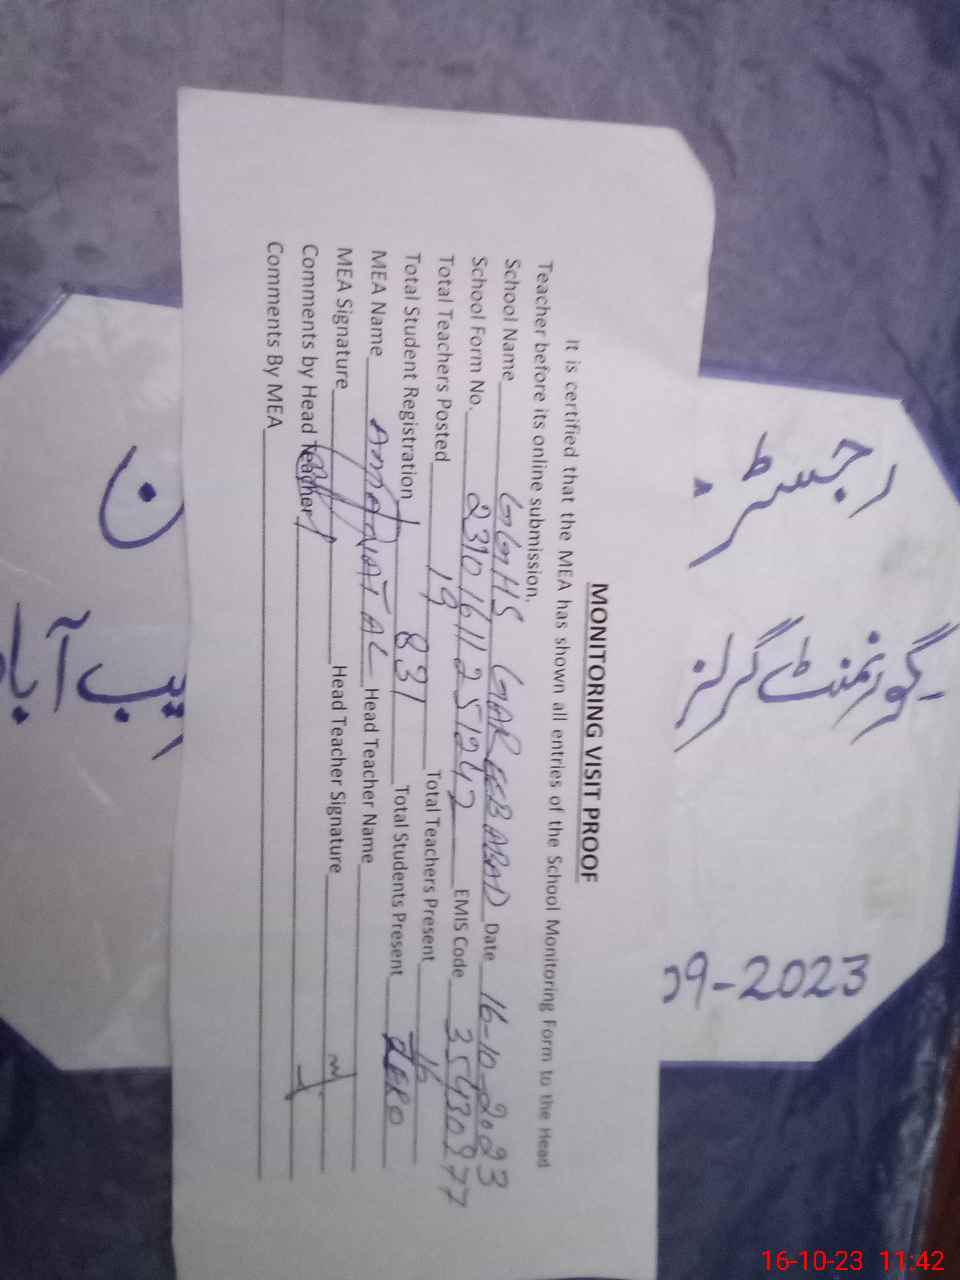 MONITORING VISIT PROOF
It is certified that the MEA has shown all entries of the School Monitoring Form to the Head
Teacher before its online submission.
School Name GGHS GAREEBABAD Date 16-10-2023
School Form No. 23101611251242 EMIS Code 35430277
Total Teachers Posted 19 Total Teachers Present 16
Total Student Registration 831 Total Students Present ZERO
MEA Name Head Teacher Name
MEA Signature Head Teacher Signature
Comments by Head Teacher
Comments By MEA
رجسٹر
گورنمنٹ گرلز
09-2023
16-10-23 11:42